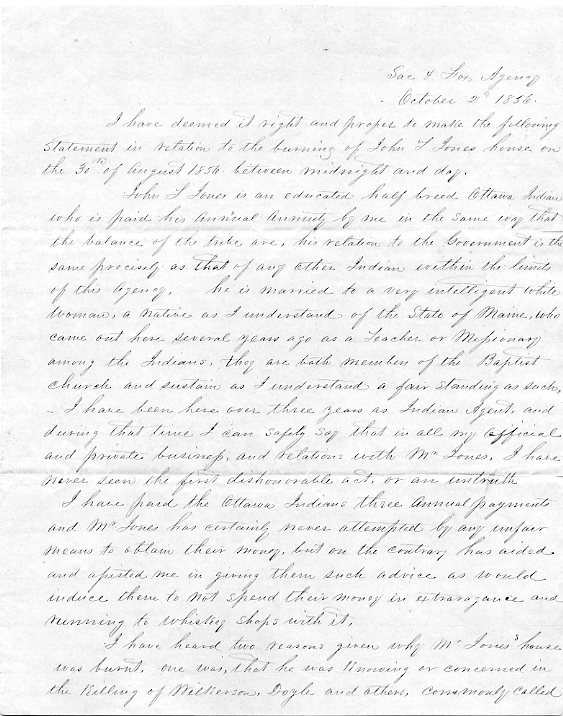 Sac & Fox Agency
October 2d 1856.
I have deemed it right and proper to make the following
Statement in relation to the burning of John T Jones house on
the 30th of August 1856 between midnight and day.
John T Jones is an educated half breed Ottawa Indian
who is paid his annual Annuity by me in the same way that
the balance of the tribe are, his relation to the Government is the
same precisely as that of any other Indian within the limits
of this Agency. he is married to a very intelligent white
woman, a native as I understand of the State of Maine, who
came out here several years ago as a Teacher or Missionary
among the Indians. they are both members of the Baptist
church and sustain as I understand a fair standing as such.
- I have been here over three years as Indian Agent, and
during that time I can safely say that in all my official
and private business, and relations with Mr Jones, I have
never seen the first dishonorable act, or an untruth
I have paid the Ottawa Indians three annual payments
and Mr Jones has certainly never attempted by any unfair
means to obtain their money, but on the contrary has aided
and assisted me in giving them such advice as would
induce them to not spend their money in extravagance and
running to whiskey shops with it.
I have heard two reasons given why Mr Jones's house
was burnt. one was, that he was knowing or concerned in
the killing of Wilkerson, Doyle and others, commonly called